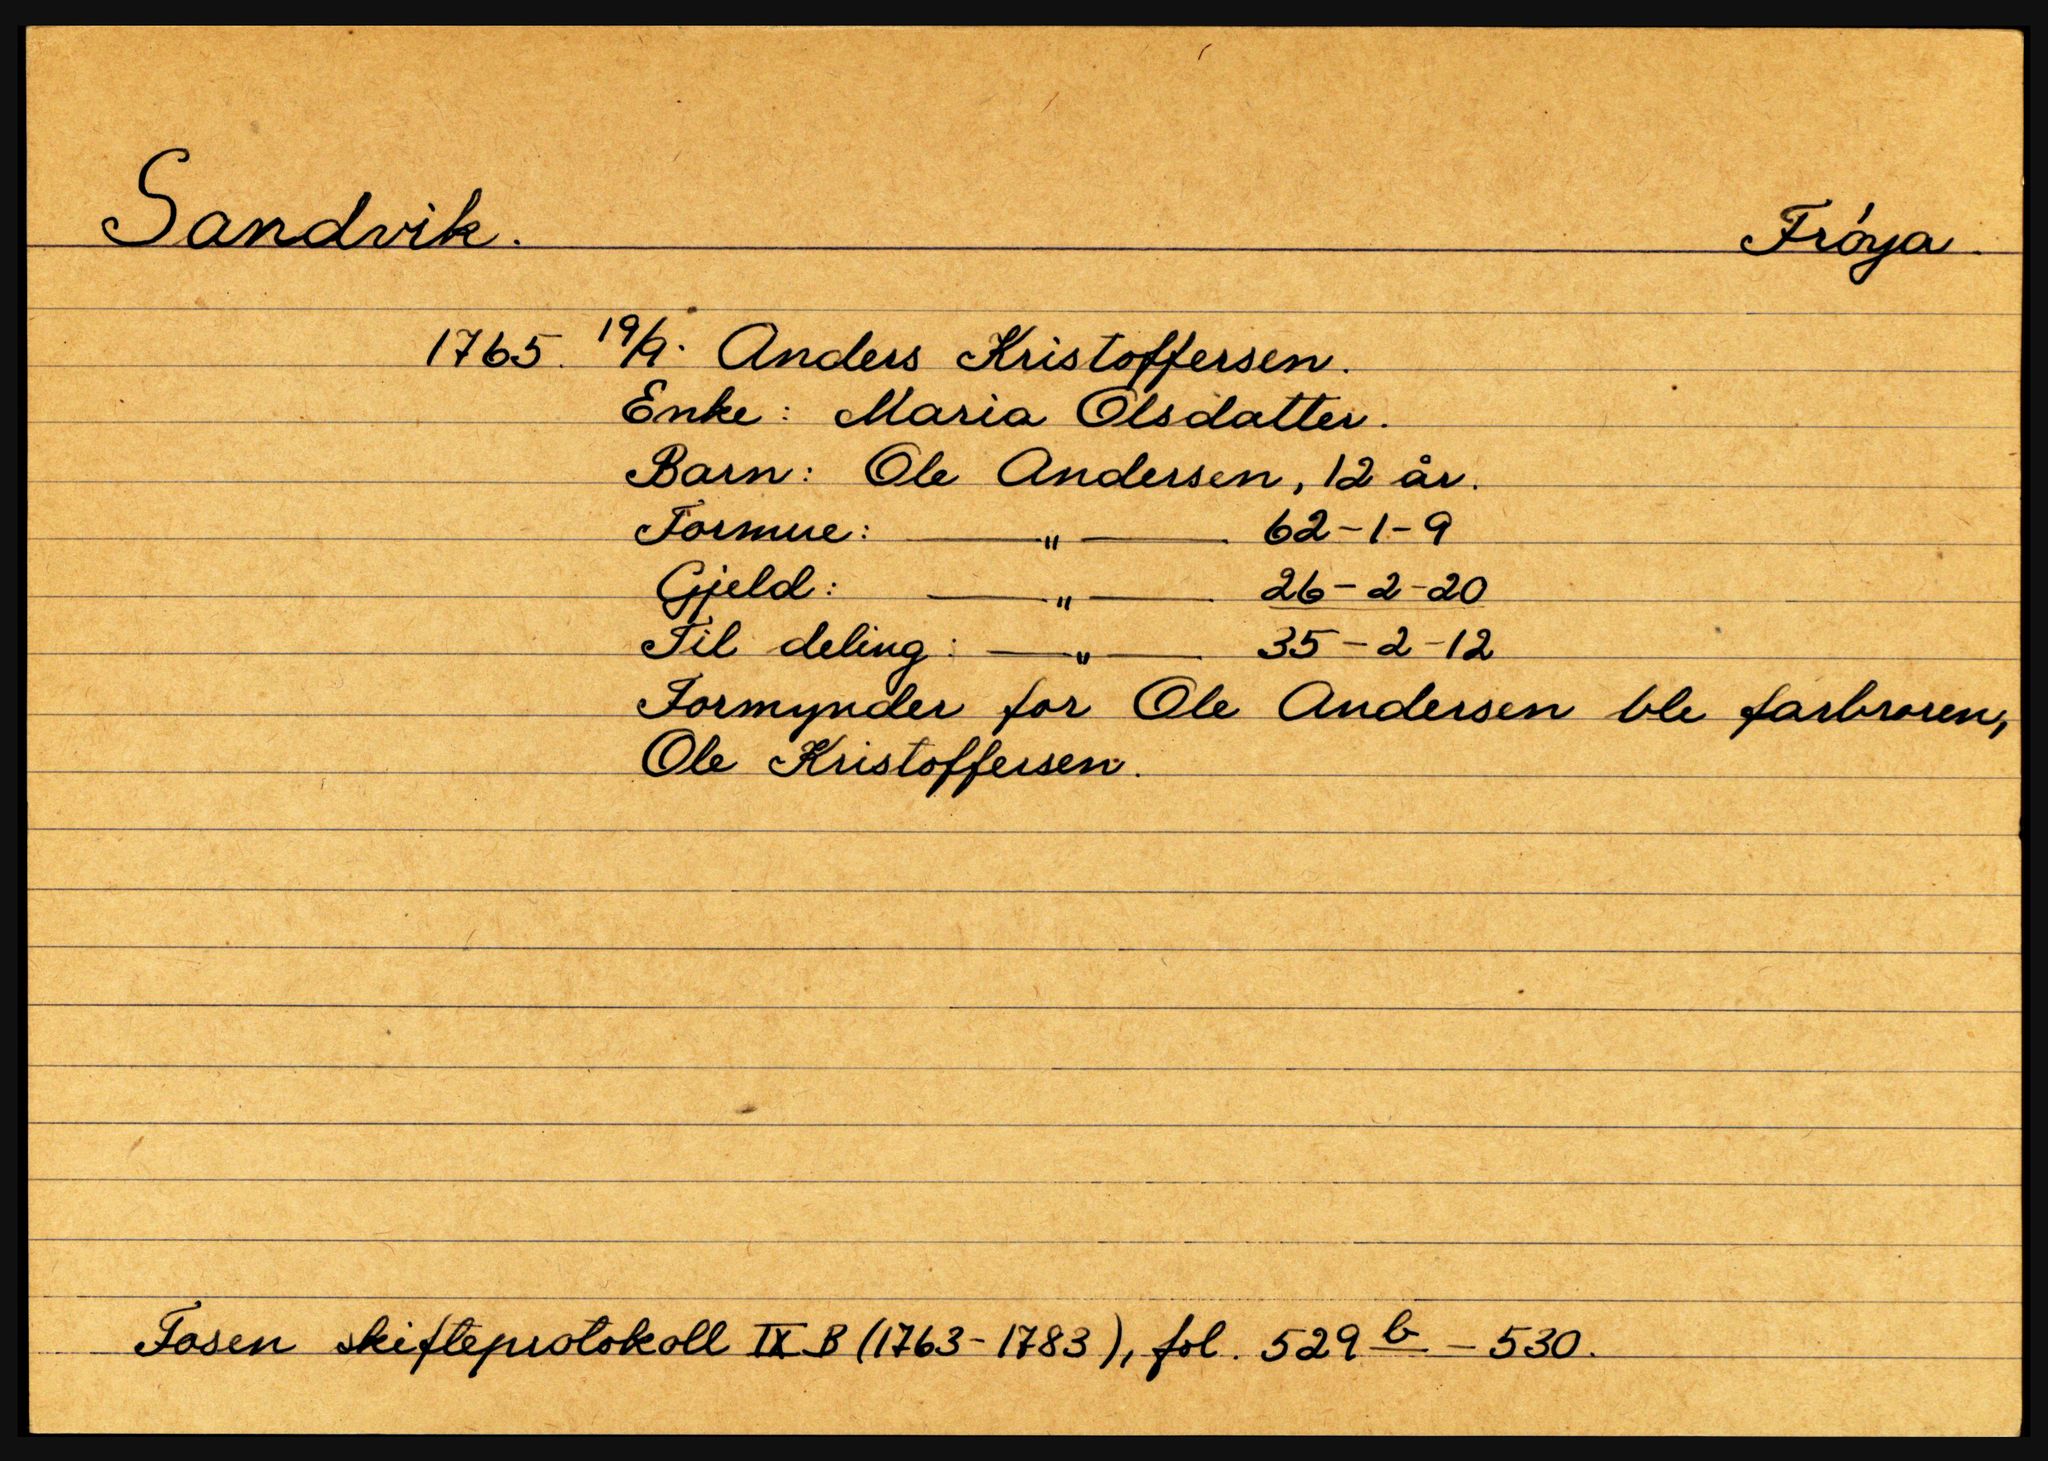 Sandvik. Frøya.
1765. 19/9. Anders Kristoffersen.
Enke: Maria Olsdatter.
Barn: Ole Andersen, 12 år.
Formue: — „ — 62-1-9
Gjeld: — „ — 26-2-20
Til deling: — „ — 35-2-12
Formynder for Ole Andersen ble farbroren,
Ole Kristoffersen.
Fosen skifteprotokoll IX B (1763-1783), fol. 529 b - 530.